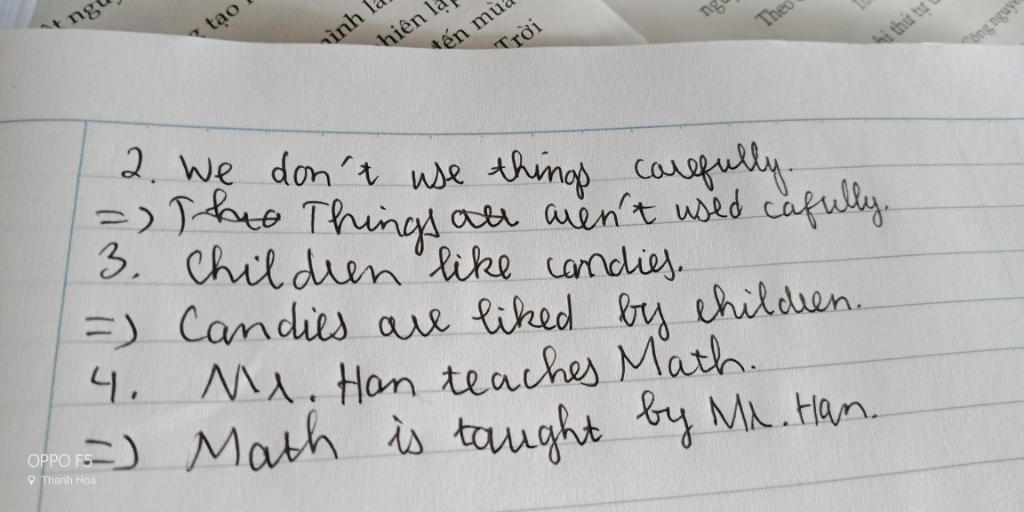 ạt ngu
tạo
hình là
hiên lập
đến mùa
Trời
ngu
Theo
hì thứ tự
Công nguyê
2. We don't use things carefully.
=) Things aren't used cafully.
3. Children like candies.
=) Candies are liked by children.
4. Mr. Han teaches Math.
=) Math is taught by Mr. Han.
OPPO F5
Thanh Hoá